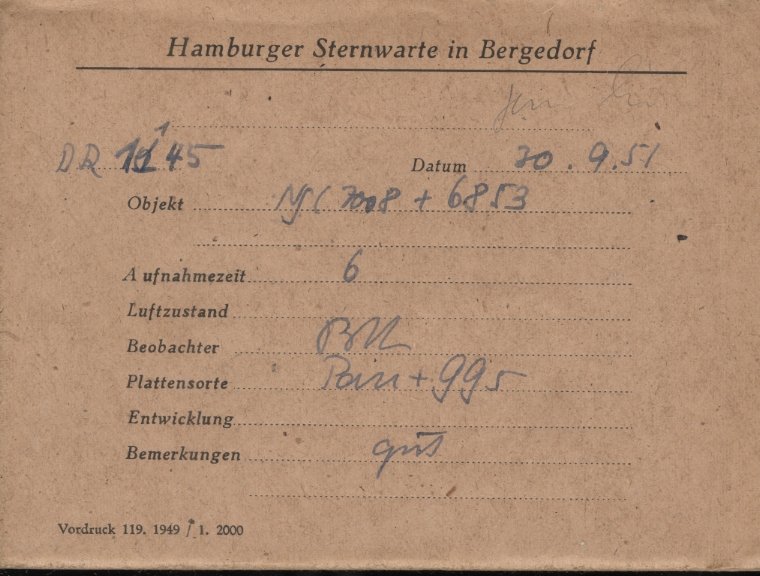 Hamburger Sternwarte in Bergedorf
DR 1145 Datum 30.9.51
Objekt NGC 7008 + 6853
Aufnahmezeit 6
Luftzustand
Beobachter
Plattensorte + 995
Entwicklung
Bemerkungen gut
Vordruck 119. 1949 / 1. 2000